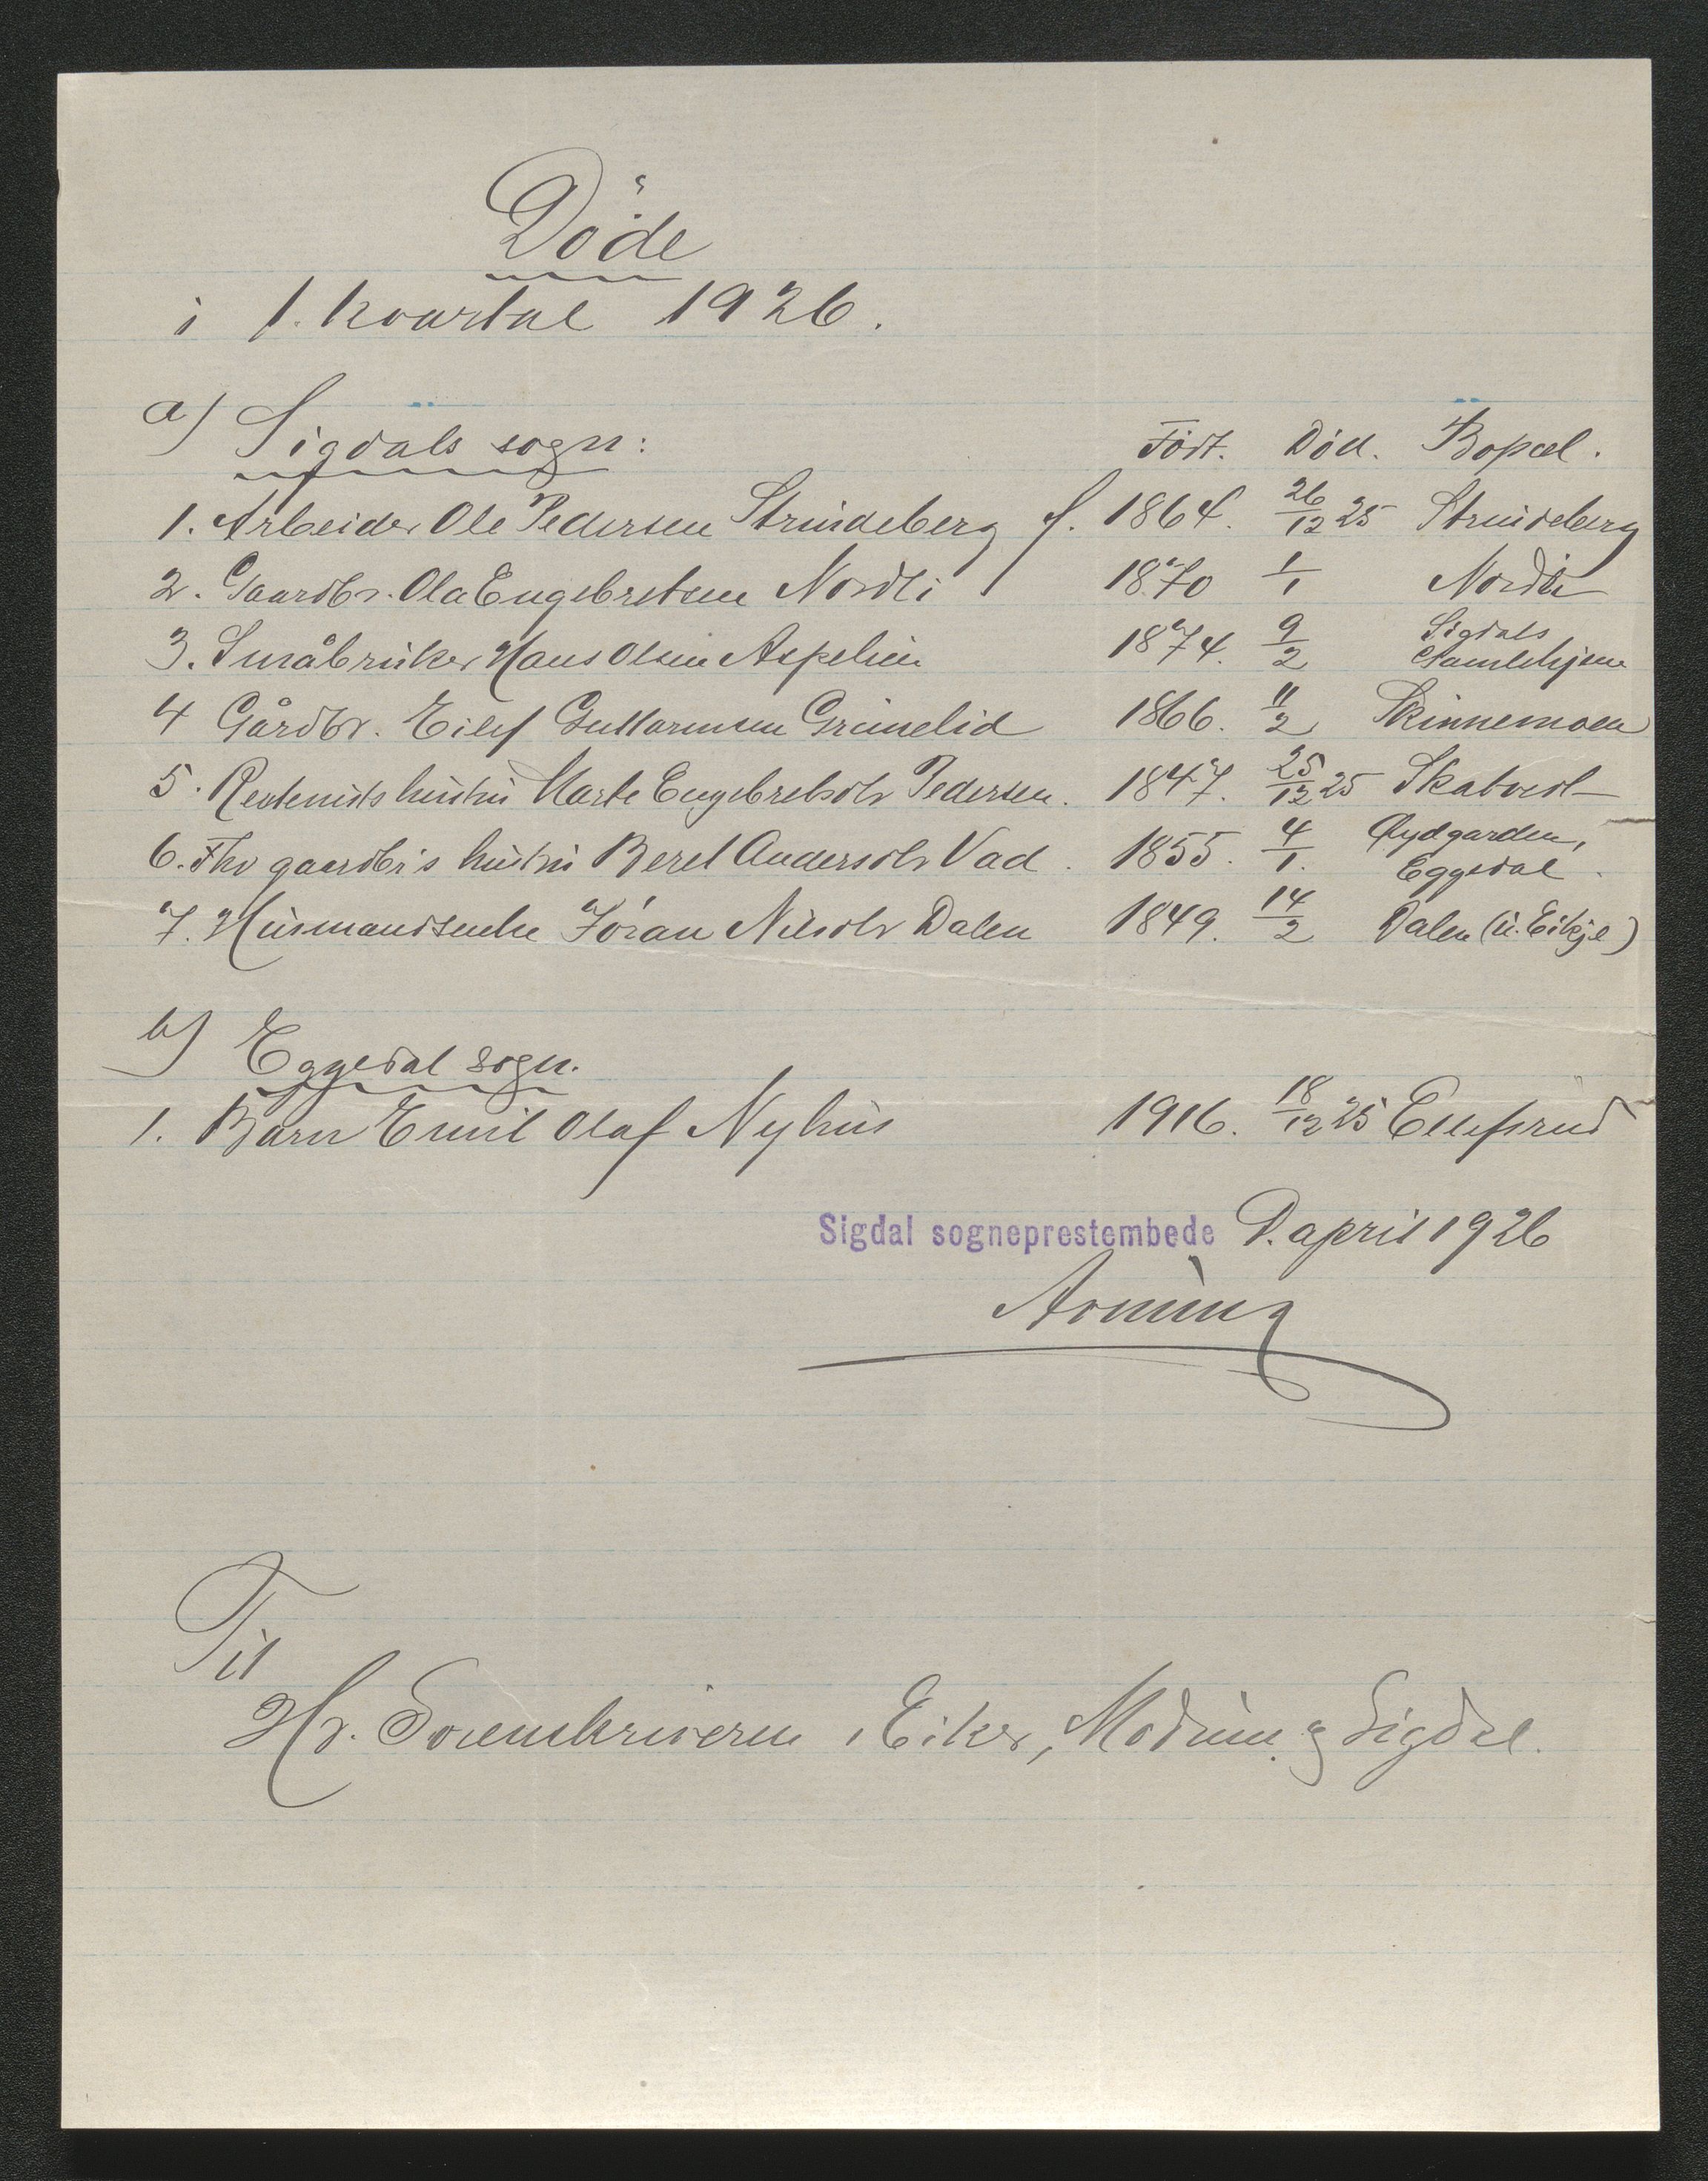 Döde
i 1. kvartal 1926.
a) Sigdals sogn: Födt. Död. Bopæl.
1. Arbeider Ole Pedersen Strindeberg f. 1864. 26/12 25 Strindeberg
2. Gaardbr. Ola Engebretsen Nordli 1870 1/1 Nordli
3. Småbruker Hans Olsen Aspelien 1874. 9/2 Sigdals Gamlehjem
4 Gårdbr. Eilef Guttormsen Grimelid 1866. 11/2 Skinnemoen
5. hustru Marte Engebretsdtr Pedersen. 1847. 25/12 25 Skatvedt
6. Fhv gaardbr's hustru Beret Andersdtr Vad. 1855. 4/1. Øydgarden, Eggedal.
7. Husmandsenke Jöran Nilsdtr Dalen 1849. 14/2 Dalen (u. Eikje)
b) Eggedal sogn.
1. Barn Emil Olaf Nyhus 1916. 18/12 25 Ellefsrud
Sigdal sogneprestembede D. april 1926
Til
Hr. Sorenskriveren i Eiker, Modum og Sigdal.